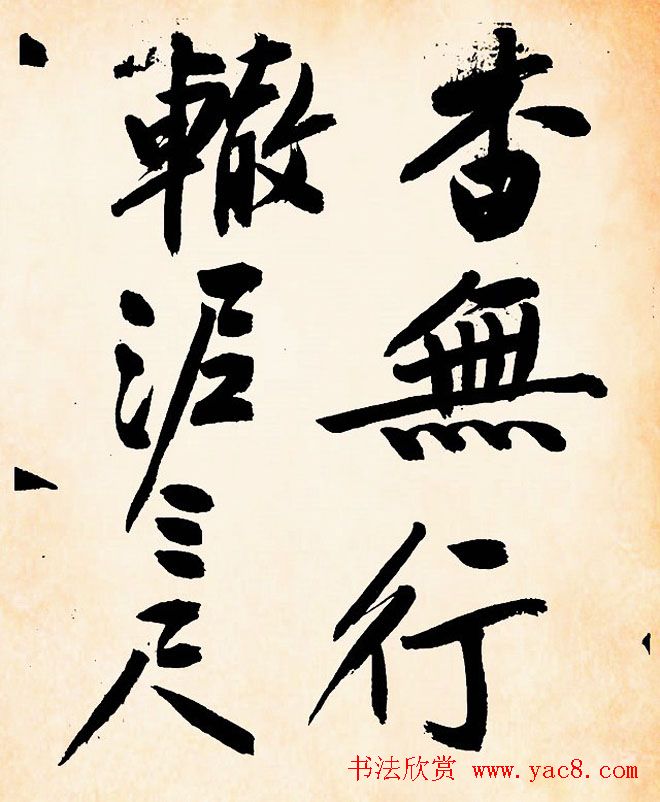 杳無行
轍泥三尺
书法欣赏 www.yac8.com